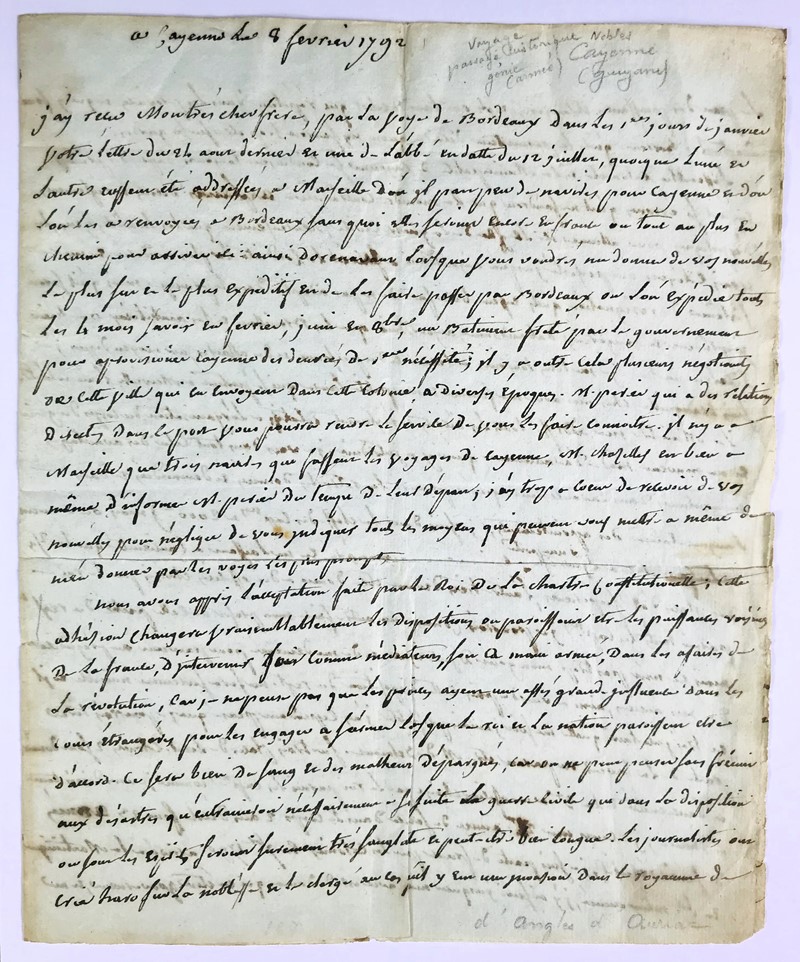 a Cayenne le 8 fevrier 1792
Voyage
passage historique Nobles
génie Cayenne
(armée) (guyane)
j'ay reçu Mon très cher frere, par La voye de Bordeaux Dans Les 1ers jours de janvier
votre Lettre du 24 aout dernier et une de L'abbé en datte du 12 juillet, quoique L'une et
L'autre eussent été addressées a Marseille d'où il part peu de navires pour Cayenne et d'ou
L'on Les a renvoyées a Bordeaux sans quoi elles seroient encore en france ou tout au plus en
chemin pour arriver ici ainsi Dorenavant Lorsque vous voudrés me donner de vos nouvelles
Le plus sur et Le plus expeditif est de Les faire passer par Bordeaux ou L'on expédie tous
Les 4 mois savoir en fevrier, juin et 8bre, un Batiment freté par Le gouvernement
pour aprovisioner Cayenne des denrées de 1ere nécessité; il y a outre cela plusieurs négotiants
de cette ville qui en envoyent Dans cette Colonie a diverses epoques. M. perier qui a des relations
Directes Dans ce port vous pourra rendre Le service De vous les faire connoitre. il n'y a a
Marseille que trois navires qui fassent Les voyages de Cayenne, M. Chazelles est bien a
même d'informer M. perier Du temps De Leur Départ; j'ay trop a Coeur de recevoir de vos
nouvelles pour négliger de vous indiquer tous les moyens qui peuvent vous mettre a même de
m'en donner par les voyes Les plus promptes
nous avons appris L'acceptation faite par Le Roi De La Chartre Constitutionelle; cette
adhésion Changera vraisemblablement les dispositions ou paroissoient etre les puissances voisines
De La france, D'intervenir soit Comme médiateurs, soit a main armée, Dans Les affaires de
La révolution, Car je ne pense pas que Les princes ayent une assés grande influence dans les
Cours étrangéres pour les engager a s'armer Lorsque Le roi et La nation paroissent etre
d'accord. Ce sera bien Du sang et des malheurs D'épargnés, car on ne peut penser sans frémir
aux désastres qu'entraineroit nécessairement a sa suite La guerre civile qui dans La disposition
ou sont les esprits seroit surement très sanglante et peut-etre bien Longue. Les journalistes ont
crié haro sur La noblesse et Le clergé au cas qu'il y eut une invasion Dans Le royaume de
d'Anglès d'Auriac